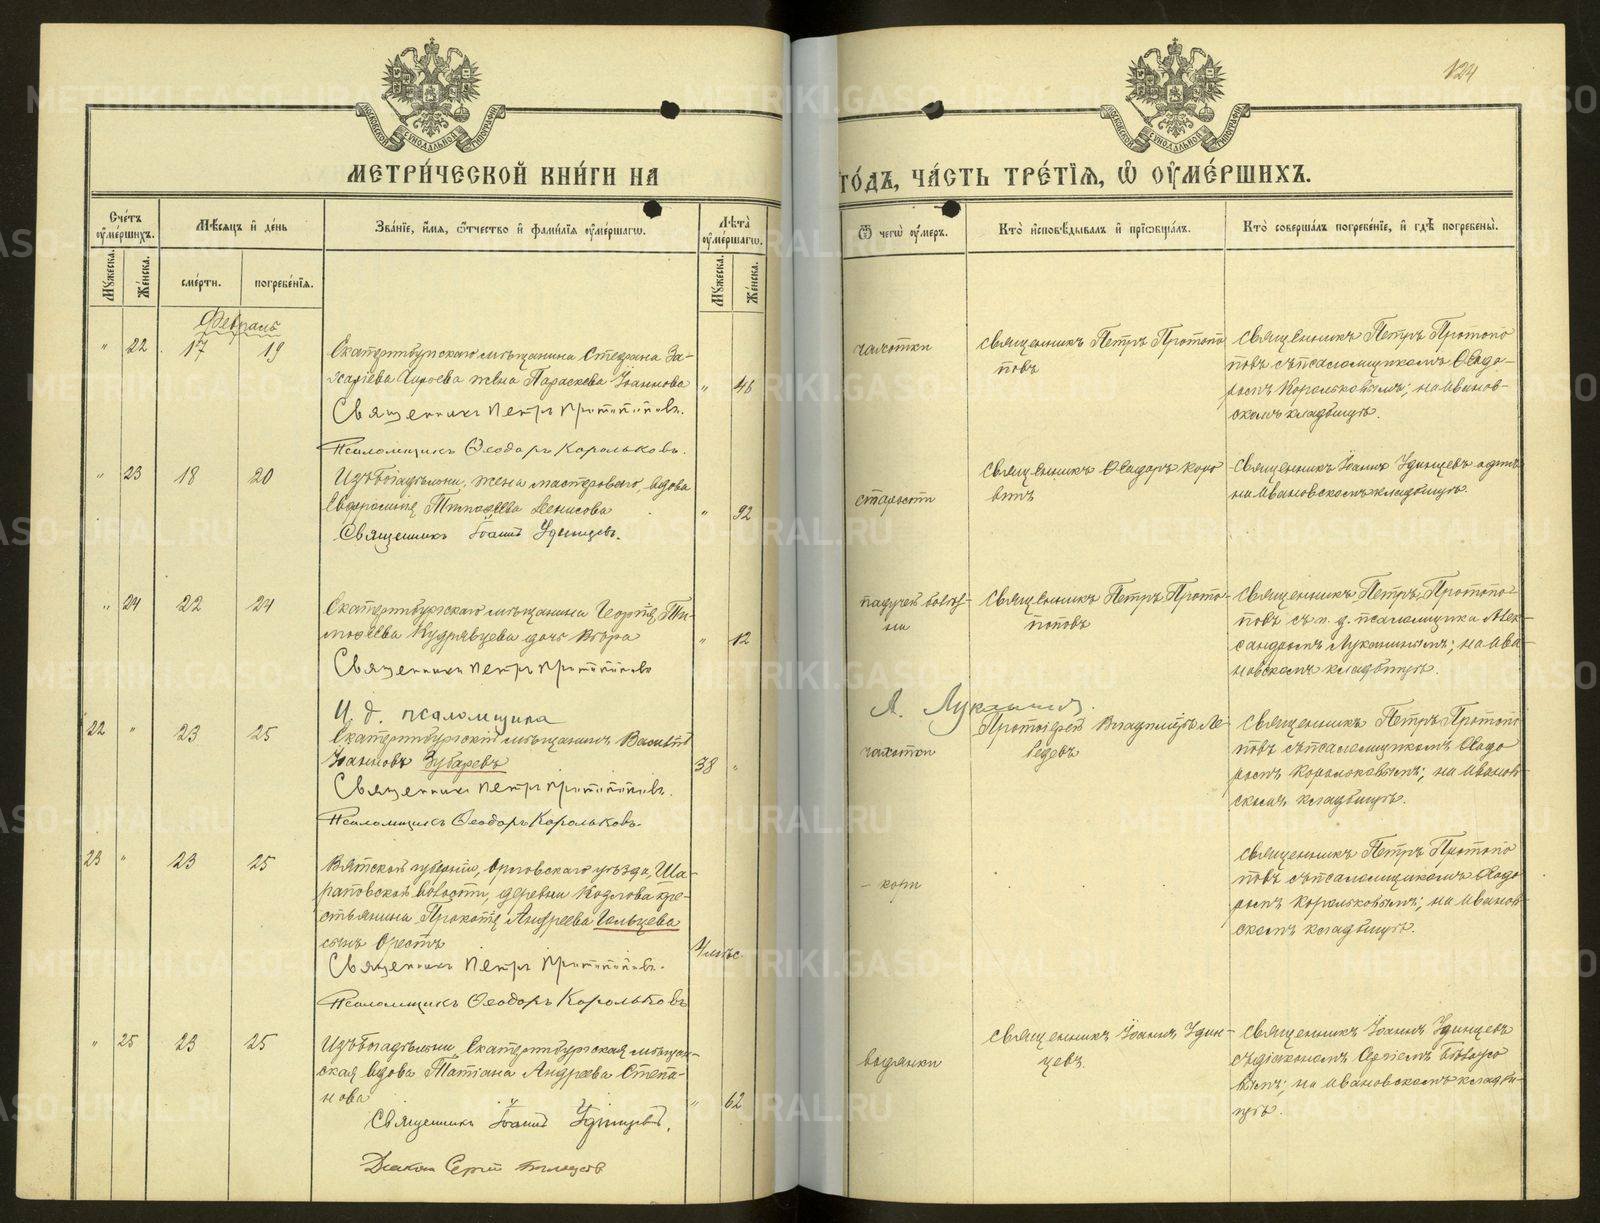 124
МОСКОВСКОЙ СѴНОДАЛЬНОЙ ТИПОГРАФІИ
МОСКОВСКОЙ СѴНОДАЛЬНОЙ ТИПОГРАФІИ
МЕТРИ́ЧЕСКОЙ КНИ́ГИ НА
ГО́ДЪ, ЧА́СТЬ ТРЕ́ТІѦ, Ѡ ОУМЕ́РШИХЪ.
Сче́тъ оумершихъ.
Мѣсяцъ и день
Зва́ніе, и́мя, о́тчество и фамилія оуме́ршагѡ.
Лѣта̀ оуме́ршагѡ.
Мꙋжеска.
Же́нска.
сме́рти.
погребе́нія.
Мꙋжеска.
Же́нска.
Ѿ чегѡ̀ оу́меръ.
Кто̀ исповѣдывалъ и пріѡбща́лъ.
Кто̀ соверша́лъ погребе́ніе, и гдѣ погребены̀.
Февраль
" 22 17 19
Екатеринбургскаго мѣщанина Стефана За-
харіева жена Параскева Іоаннова
" 48
Священникъ Петръ Протопоповъ.
Псаломщикъ Ѳеодоръ Корольковъ.
чахотки
Священникъ Петръ Протопо
повъ
Священникъ Петръ Протопо
повъ съ псаломщикомъ Ѳеодо-
ромъ Корольковымъ; на Иванов-
скомъ кладбищѣ.
" 23 18 20
Изъ богадѣльни, жена мастерового, вдова
Евфросинія Тимоѳеева Денисова
" 92
Священникъ Іоаннъ Удинцевъ.
старости
Священникъ Ѳеодоръ Коро
Священникъ Іоаннъ Удинцевъ одинъ
на Ивановскомъ кладбищѣ.
" 24 22 24
Екатеринбургскаго мѣщанина Георгія Ти-
моѳеева Кудрявцева дочь Вѣра
" 12
Священникъ Петръ Протопоповъ
И. д. псаломщика
А. Луканинъ.
падучей болѣз-
ни
Священникъ Петръ Прото-
поповъ
Священникъ Петръ Протопо
повъ съ и. д. псаломщика Алек-
сандромъ Луканинымъ; на Ива-
новскомъ кладбищѣ.
22 " 23 25
Екатеринбургскій мѣщанинъ Василій
Іоанновъ Зубаревъ
38 "
Священникъ Петръ Протопоповъ.
Псаломщикъ Ѳеодоръ Корольковъ.
чахотки
Протоіерей Владиміръ Ле
бедевъ
Священникъ Петръ Протопо
повъ съ псаломщикомъ Ѳеодо
ромъ Корольковымъ; на Иванов-
скомъ кладбищѣ.
23 " 23 25
Вятской губерніи, Орловскаго уѣзда, Ша-
раповской волости, деревни Козлова кре-
стьянина Прокопія Андреева Гольцева
сынъ Орестъ
Священникъ Петръ Протопоповъ.
Псаломщикъ Ѳеодоръ Корольковъ
кори
Священникъ Петръ Протопо
повъ съ псаломщикомъ Ѳеодо
ромъ Корольковымъ; на Иванов-
скомъ кладбищѣ.
" 25 23 25
Изъ богадѣльни, Екатеринбургская мѣщан-
ская вдова Татіана Андреева Степа-
нова
" 62
Священникъ Іоаннъ Удинцевъ.
Діаконъ Сергій
водянки
Священникъ Іоаннъ Удин-
цевъ
Священникъ Іоаннъ Удинцевъ
съ діакономъ Сергіемъ Бѣлоусо
вымъ; на Ивановскомъ кладби-
щѣ.
METRIKI.GASO-URAL.RU